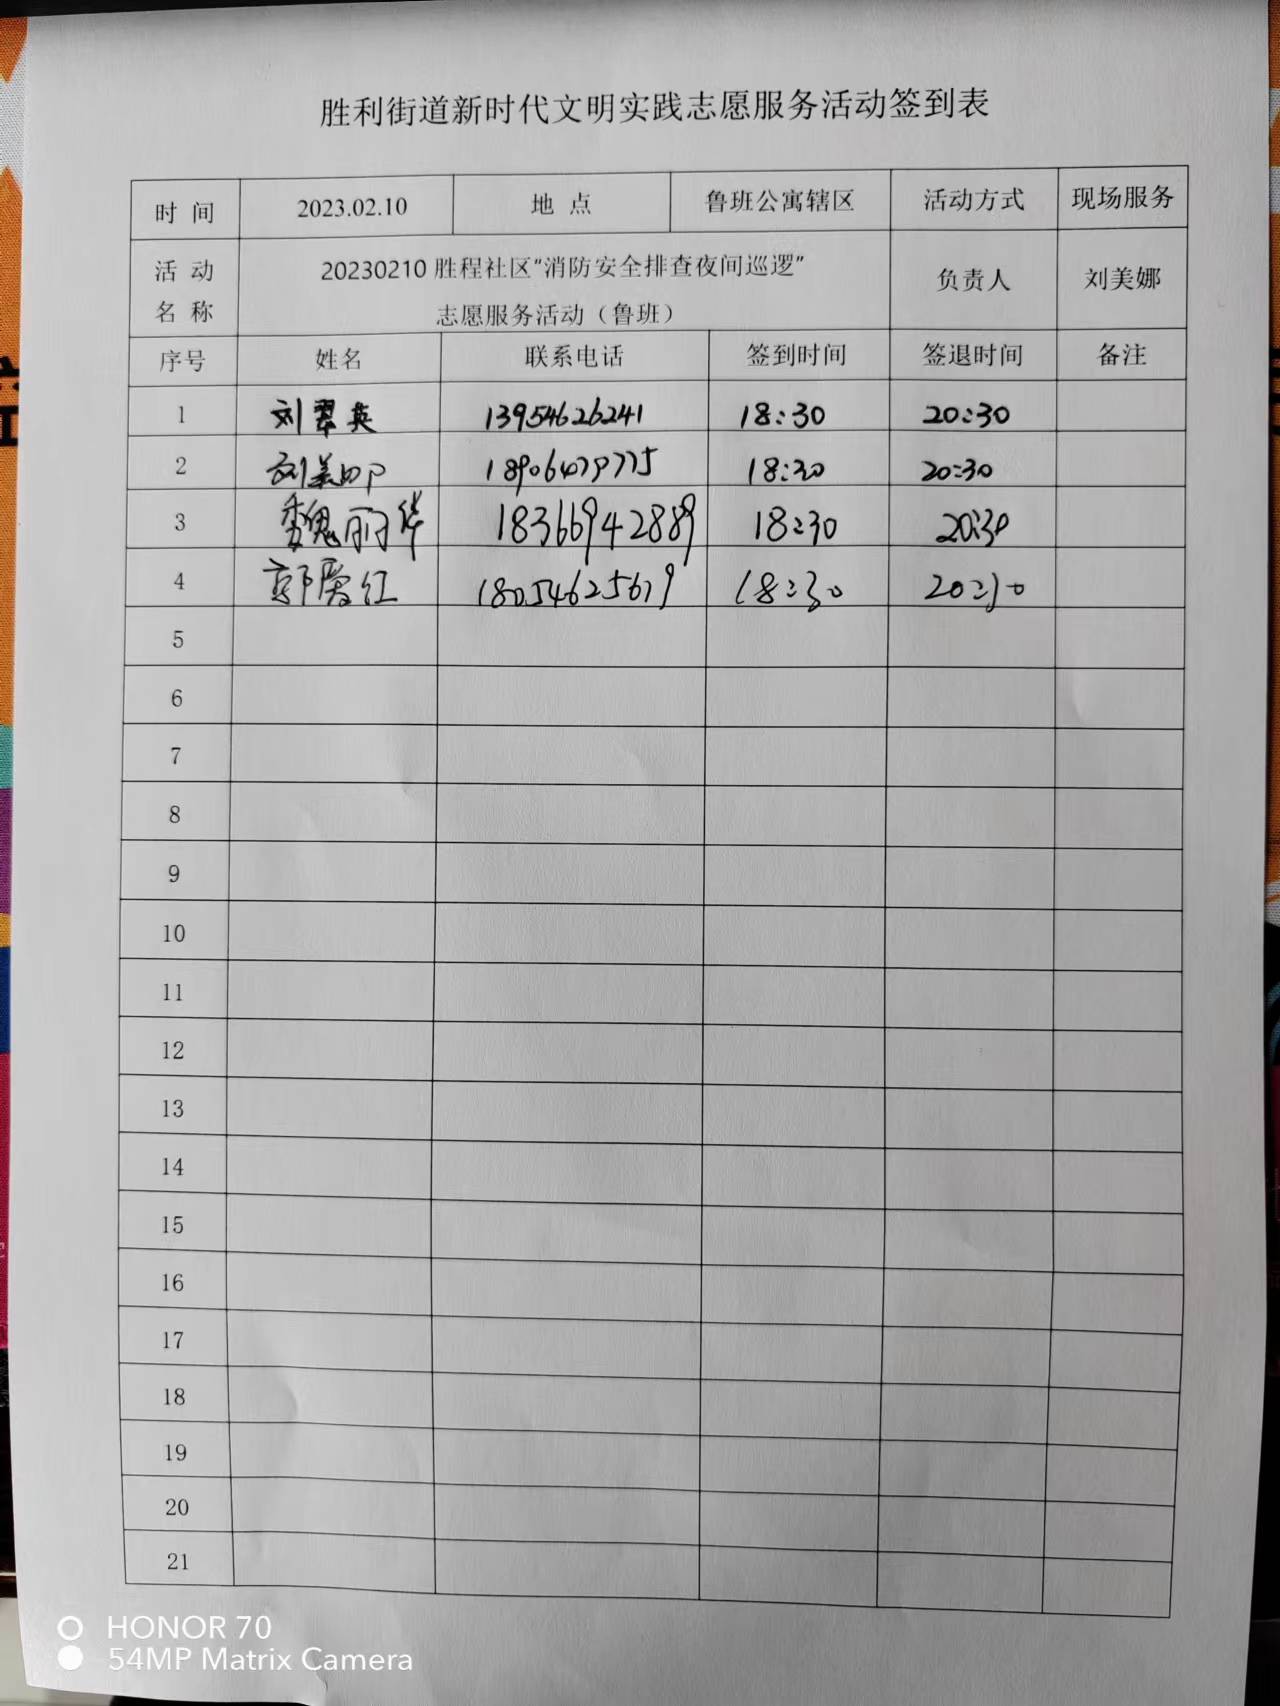 胜利街道新时代文明实践志愿服务活动签到表
时 间 2023.02.10 地 点 鲁班公寓辖区 活动方式 现场服务
活 动 名 称 20230210 胜程社区“消防安全排查夜间巡逻” 负责人 刘美娜
志愿服务活动（鲁班）
序号 姓名 联系电话 签到时间 签退时间 备注
1 刘翠英 13954626241 18:30 20:30
2 刘美娜 18:30 20:30
3 魏丽华 18366942889 18:30 20:30
4 郭爱红 18054625679 18:30 20:30
5
6
7
8
9
10
11
12
13
14
15
16
17
18
19
20
21
HONOR 70
54MP Matrix Camera